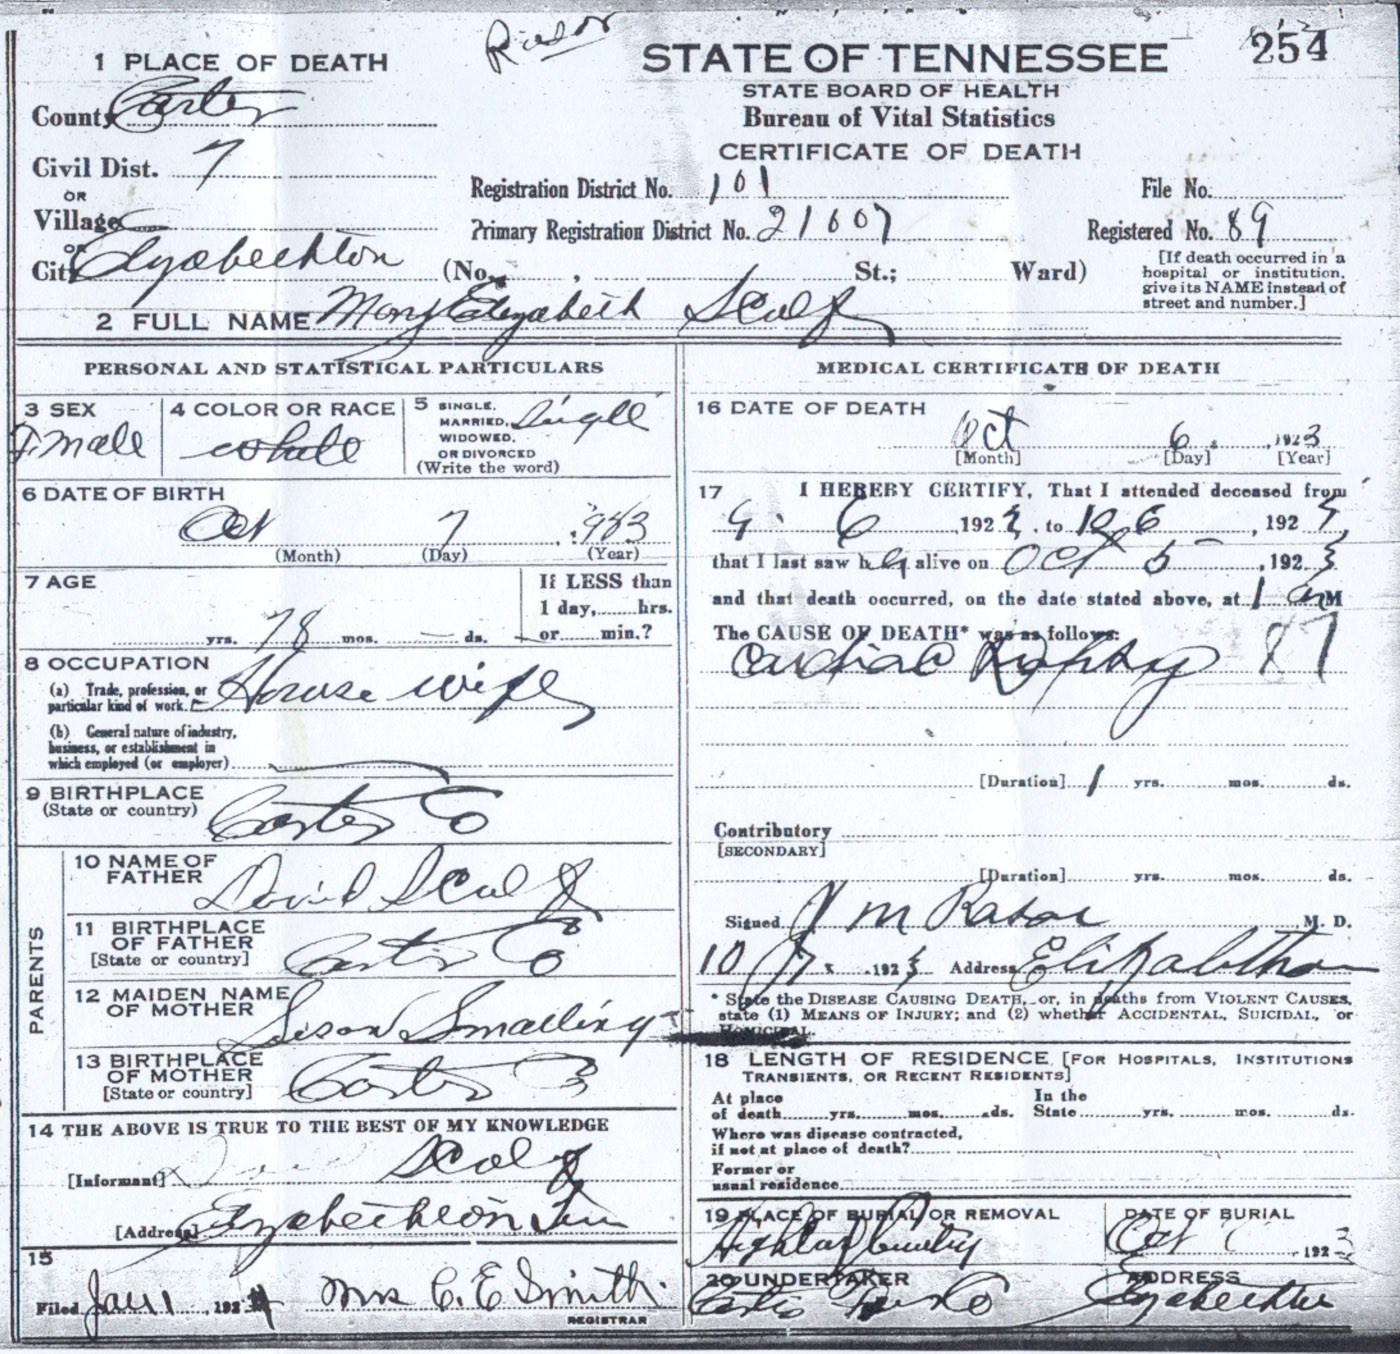 Rasor
254
STATE OF TENNESSEE
STATE BOARD OF HEALTH
Bureau of Vital Statistics
CERTIFICATE OF DEATH
1 PLACE OF DEATH
County Carter
Civil Dist. 7
OR
Village
OR
City Elyzabechton (No. , St.; Ward)
Registration District No. 101
File No.
Primary Registration District No. 21607
Registered No. 89
[If death occurred in a hospital or institution, give its NAME instead of street and number.]
2 FULL NAME Mary Elizabeth Scalf
PERSONAL AND STATISTICAL PARTICULARS
3 SEX Fmale
4 COLOR OR RACE white
5 SINGLE, MARRIED, WIDOWED, OR DIVORCED (Write the word) Single
6 DATE OF BIRTH
Oct 7
(Month) (Day) (Year)
7 AGE
yrs. 78 mos. — ds.
If LESS than
1 day, hrs.
or min.?
8 OCCUPATION
(a) Trade, profession, or particular kind of work. House wife
(b) General nature of industry, business, or establishment in which employed (or employer)
9 BIRTHPLACE
(State or country) Carter Co
PARENTS
10 NAME OF FATHER David Scalf
11 BIRTHPLACE OF FATHER
[State or country] Carter Co
12 MAIDEN NAME OF MOTHER Susan Smalling
13 BIRTHPLACE OF MOTHER
[State or country] Carter Co
14 THE ABOVE IS TRUE TO THE BEST OF MY KNOWLEDGE
[Informant] Scalf
[Address] Elyzabechton Tenn
15
Filed Jan 1, 1924 Mrs C. E. Smith
REGISTRAR
MEDICAL CERTIFICATE OF DEATH
16 DATE OF DEATH
Oct 6, 1923
[Month] [Day] [Year]
17 I HEREBY CERTIFY, That I attended deceased from
9 6, 1923, to 10 6, 1923
that I last saw her alive on Oct 5, 1923
and that death occurred, on the date stated above, at 1 am M
The CAUSE OF DEATH* was as follows:
Cardiac Dropsy 87
[Duration] 1 yrs. mos. ds.
Contributory
[SECONDARY]
[Duration] yrs. mos. ds.
Signed J M Rasor M. D.
10/7, 1923 Address Elizabethton
* State the DISEASE CAUSING DEATH, or, in deaths from VIOLENT CAUSES,
state (1) MEANS OF INJURY; and (2) whether ACCIDENTAL, SUICIDAL, or
HOMICIDAL.
18 LENGTH OF RESIDENCE [FOR HOSPITALS, INSTITUTIONS
TRANSIENTS, OR RECENT RESIDENTS]
At place of death yrs. mos. ds. In the State yrs. mos. ds.
Where was disease contracted,
if not at place of death?
Former or
usual residence
19 PLACE OF BURIAL OR REMOVAL
Highland
DATE OF BURIAL
Oct 1923
20 UNDERTAKER
ADDRESS
Elyzabechton